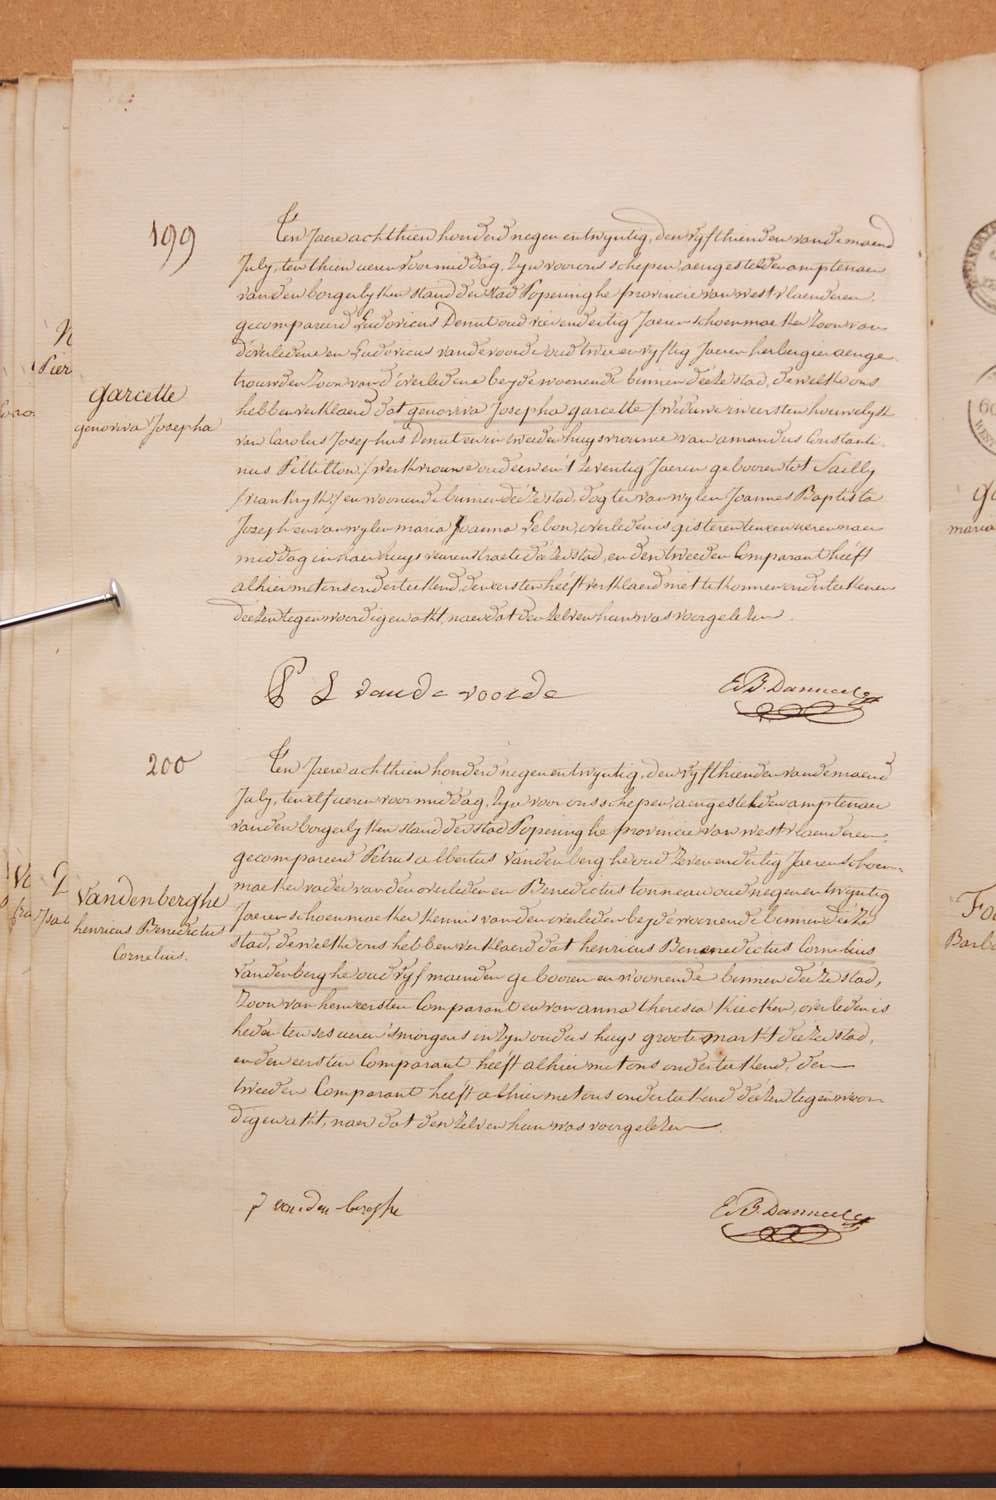 199
garcette
genoviva Josepha
Ten Jaere achthien honderd negen en twyntig, den vyfthienden van de maend
July, ten thien ueren voormiddag, zyn voor ons schepen aengestelden amptenaer
van den borgerlyken stand der stad Poperinghe provincie van westvlaenderen,
gecompareerd Ludovicus Denut oud vierendertig Jaeren schoenmaeker zoon van
d'overledene en Ludovicus vandevoorde oud twee en vyftig Jaeren herbergier aenge
trouwden zoon van d'overledene beyde woonende binnen deeze stad, dewelke ons
hebben verklaerd dat genoviva Josepha garcette /weduwe in eersten houwelyk
van Carolus Josephus Denut en in tweeden huysvrouwe van amandus Constanti
nus Pittillon/ werkvrouwe oud een en 't zeventig Jaeren gebooren tot Sailly
/vrankryk/ en woonende binnen deeze stad, dogter van wylen Joannes Baptista
Joseph en van wylen maria Joanna Lebon, overleden is gisteren ten een ueren naer
middag in haer huys veurenstraete deezer stad, en den tweeden Comparant heeft
alhier met ons onderteekend, den eersten heeft verklaerd niet te konnen onderteekenen
deezen tegenwoordigen akt, naer dat den zelven hun was voorgelezen.
P L vande voorde
E.B. Danneel
200
Vandenberghe
henricus Benedictus
Cornelius.
Ten Jaere achthien honderd negen en twyntig, den vyfthienden van de maend
July, ten elf ueren voormiddag, zyn voor ons schepen, aengestelden amptenaer
van den borgerlyken stand der stad Poperinghe provincie van westvlaenderen,
gecompareerd Petrus albertus Vandenberghe oud zevenendertig Jaeren schoen-
maeker vader van den overleden en Benedictus tonneau oud negen en twyntig
Jaeren schoenmaeker kennis van den overleden beyde woonende binnen deeze
stad, dewelke ons hebben verklaerd dat henricus Benenedictus Cornelius
Vandenberghe oud vyf maenden gebooren en woonende binnen deeze stad,
zoon van hem eersten Comparant en van anna theresia Kiecken, overleden is
heden ten ses ueren 's morgens in zyn ouders huys groote markt deezer stad,
en den eersten Comparant heeft alhier met ons onderteekend, den
tweeden Comparant heeft alhier met ons onderteekend deezen tegenwoor-
digen akt, naer dat den zelven hun was voorgelezen.
p vanden berghe
E.B. Danneel
Pier
maria
Barba